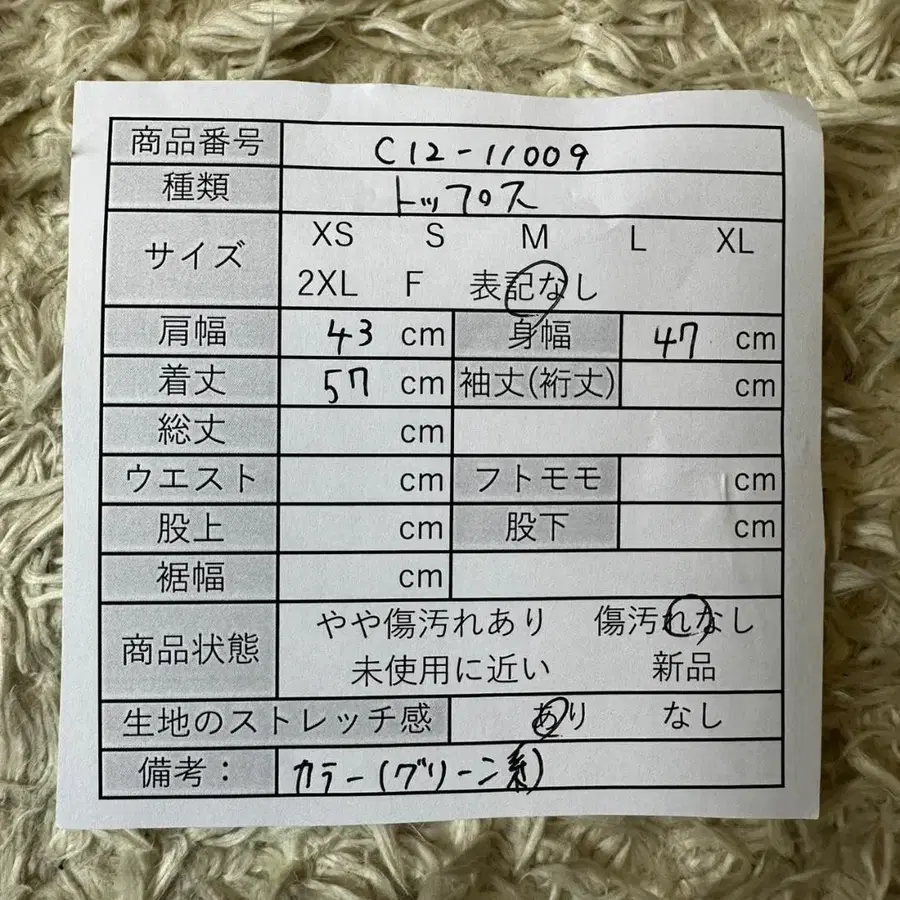 商品番号 C12-11009
種類 トップス
サイズ XS S M L XL
2XL F 表記なし
肩幅 43 cm 身幅 47 cm
着丈 57 cm 袖丈(裄丈) cm
総丈 cm
ウエスト cm フトモモ cm
股上 cm 股下 cm
裾幅 cm
商品状態 やや傷汚れあり 傷汚れなし
未使用に近い 新品
生地のストレッチ感 あり なし
備考： カラー(グリーン系)